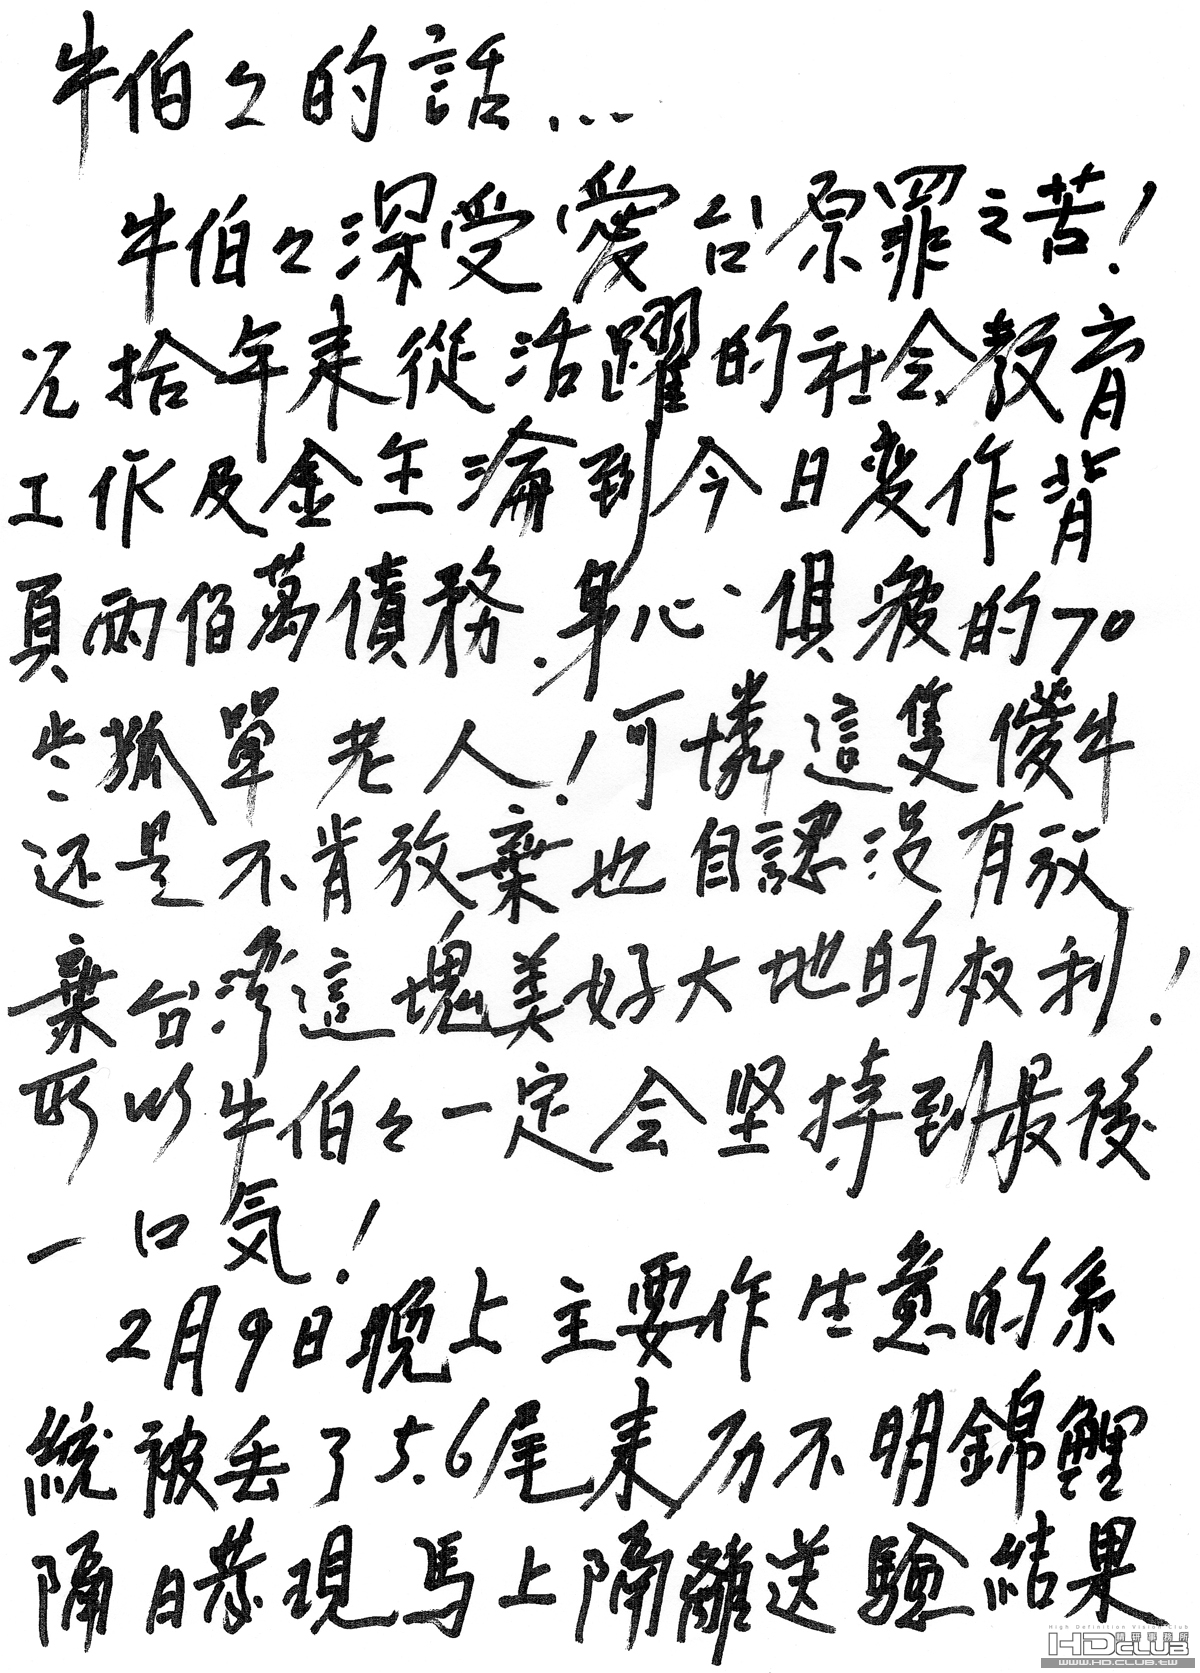 牛伯々的話...
牛伯々深受愛台原罪之苦!
尤拾年来從活躍的社会教育
工作及金主淪到今日变作背
負兩佰萬債務.身心俱疲的70
岁孤單老人!可憐這隻儍牛
还是不肯放棄也自認没有放
棄台灣這塊美好大地的权利!
所以牛伯々一定会坚持到最後
一口気!
2月9日晚上主要作生意的系
統被丢了5.6尾来历不明錦鯉
隔日發現馬上隔離送驗結果
High Definition Vision Club
HD CLUB 精研事務所
WWW.HD.CLUB.TW